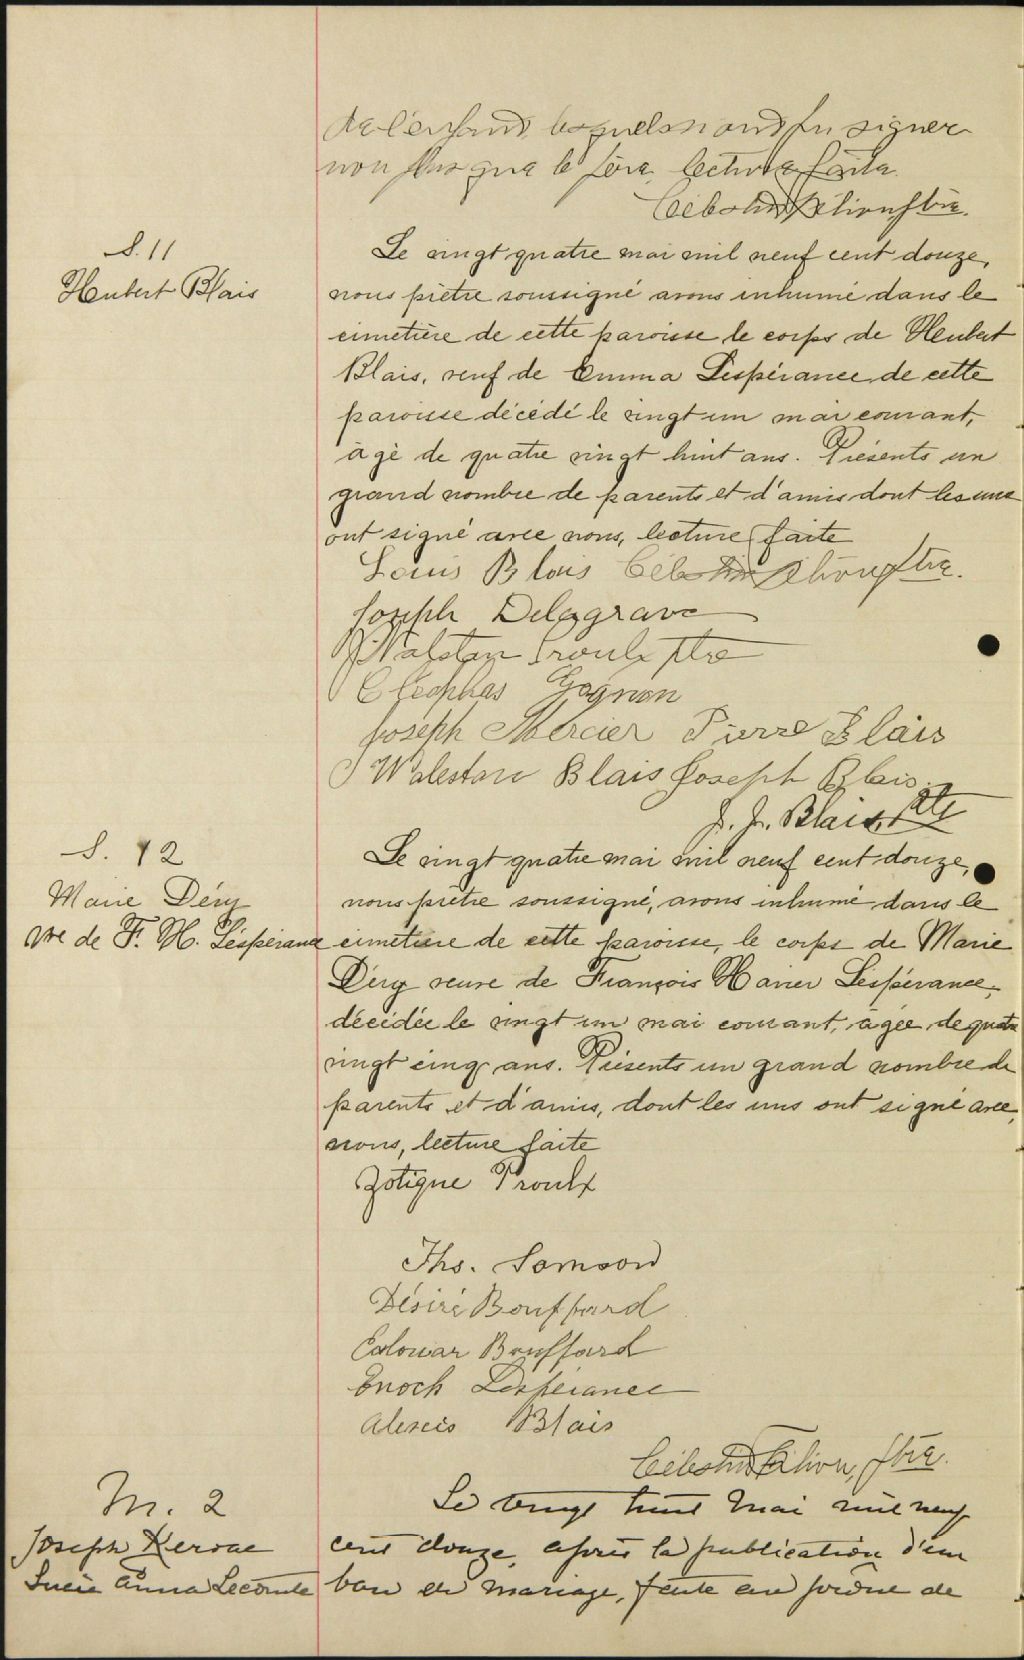 de l'enfant, lesquels n'ont pu signer
non plus que le père, lecture faite.
Célestin ptre.
S. 11
Hubert Blais
Le vingt quatre mai mil neuf cent douze,
nous prêtre soussigné avons inhumé dans le
cimetière de cette paroisse le corps de Heubert
Blais, veuf de Emma Lespérance de cette
paroisse décédé le vingt un mai courant,
âgé de quatre vingt huit ans. Présents un
grand nombre de parents et d'amis dont les uns
ont signé avec nous, lecture faite
Louis Blais Célestin ptre.
Joseph Delagrave
J Walstan Proulx ptre
Cléophas Gagnon
Joseph Mercier Pierre Blais
J Walestan Blais Joseph Blais
J. J. Blais, Ptr
S. 12
Marie Déry
vve de F. X. Lespérance
Le vingt quatre mai mil neuf cent douze,
nous prêtre soussigné, avons inhumé dans le
cimetière de cette paroisse, le corps de Marie
Déry veuve de François Xavier Lespérance,
décédée le vingt un mai courant, âgée de quatre
vingt cinq ans. Présents un grand nombre de
parents et d'amis, dont les uns ont signé avec
nous, lecture faite
Zotique Proulx
Ths. Samson
Désiré Bouffard
Edouar Bouffard
Enoch Lespérance
Alexis Blais
Célestin ptre.
M. 2
Joseph Keroac
Lucie Anna Lecomte
Le vingt huit Mai mil neuf
cent douze, après la publication d'un
ban de mariage, faite au prône de